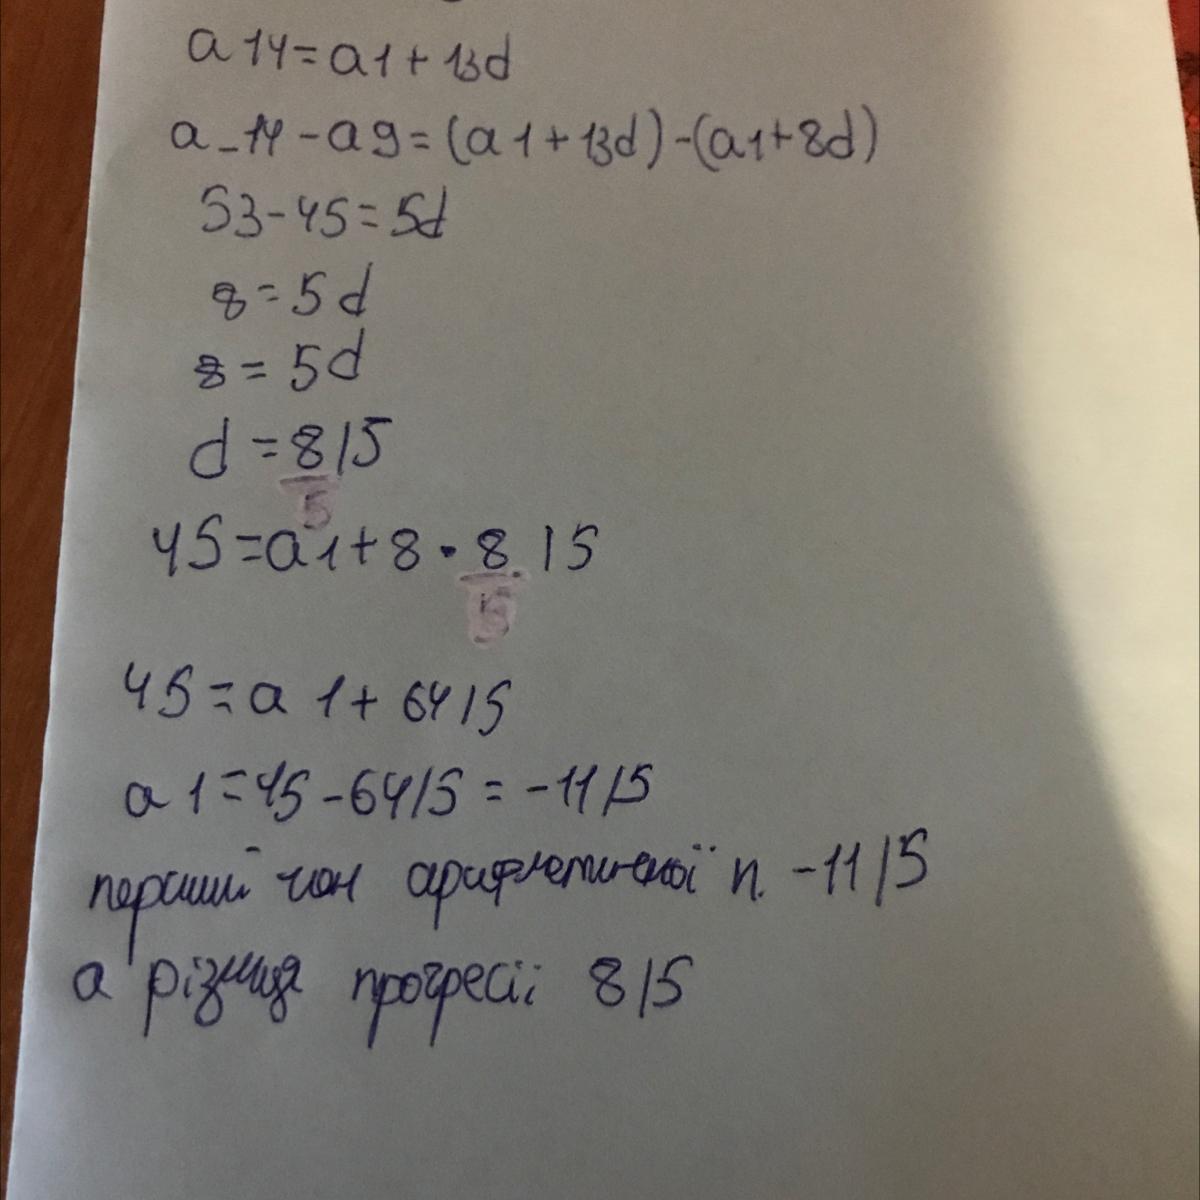 a14=a1+13d
a_14-a9=(a1+13d)-(a1+8d)
53-45=5d
8=5d
8=5d
d=8/5
5
45=a1+8·8/5
5
45=a1+64/5
a1=45-64/5=-11/5
перший член арифметичної п. -11/5
а різниця прогресії 8/5